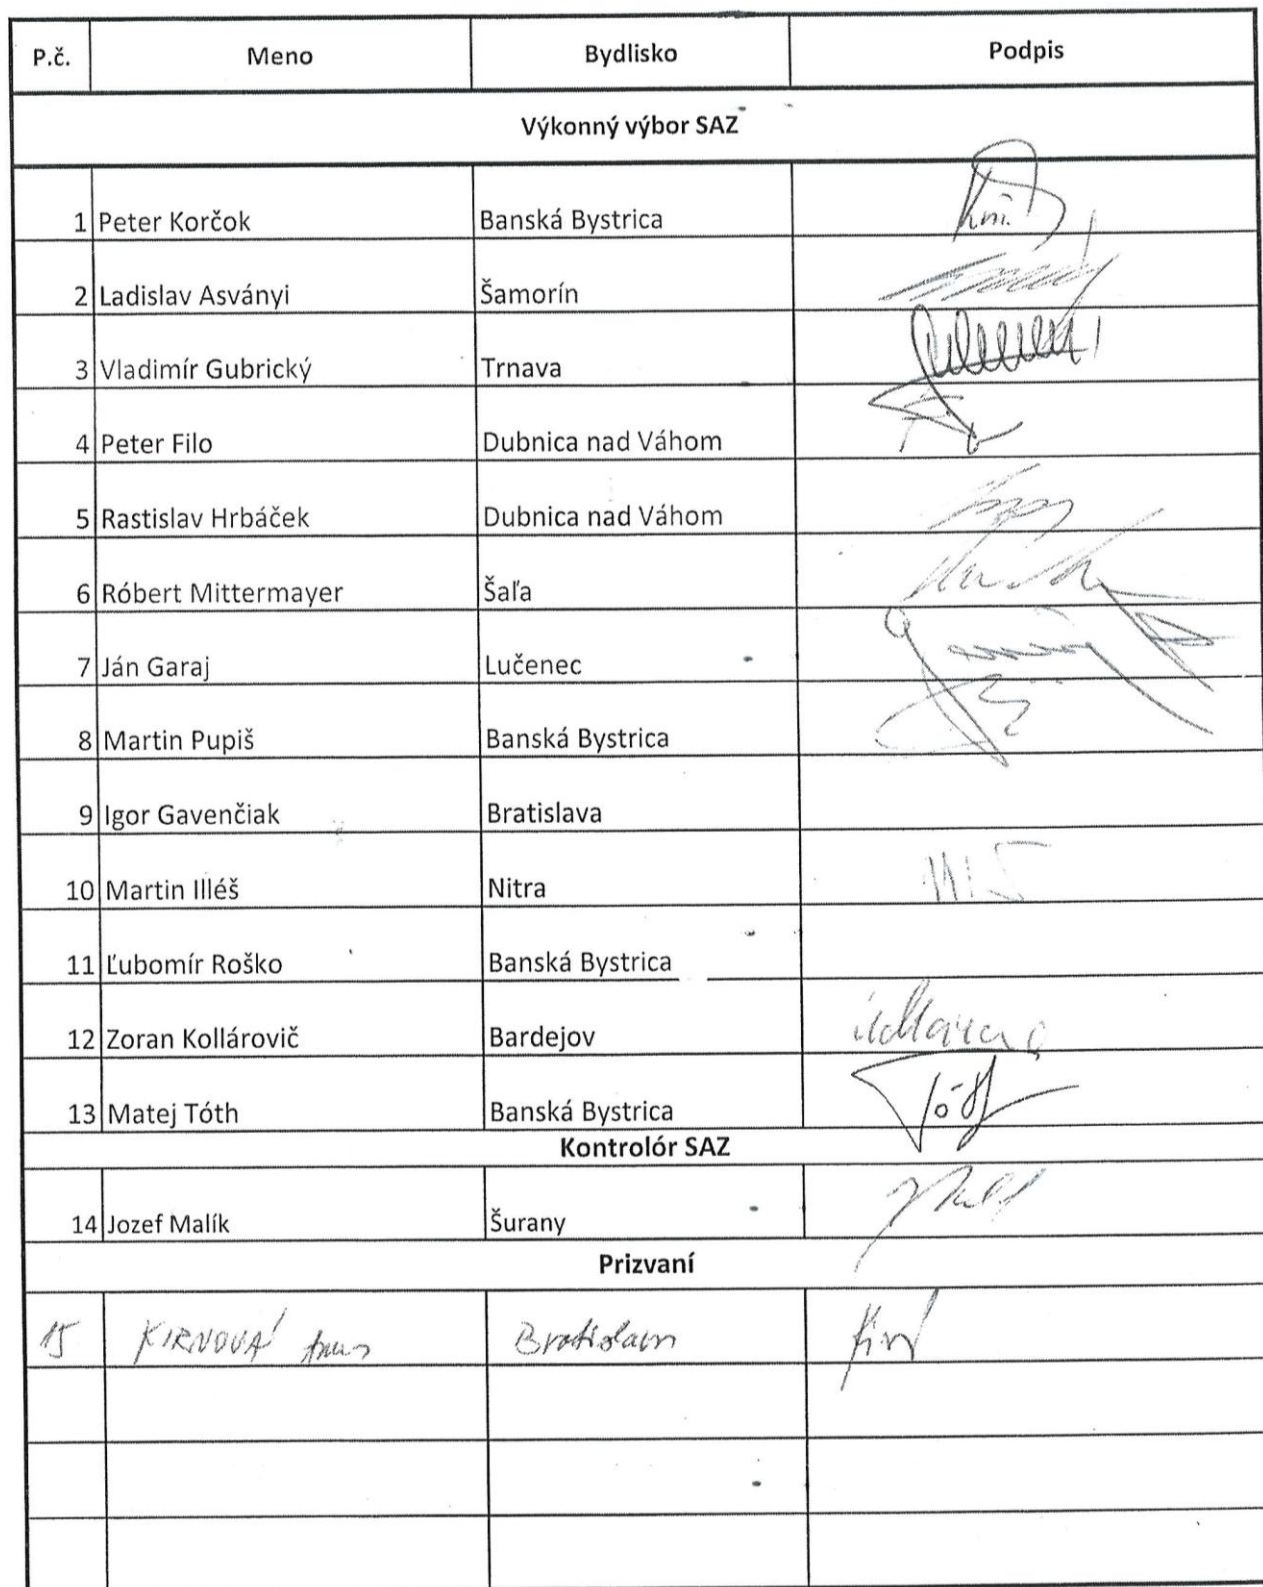 P.č. Meno Bydlisko Podpis
Výkonný výbor SAZ
1 Peter Korčok Banská Bystrica
2 Ladislav Asványi Šamorín
3 Vladimír Gubrický Trnava
4 Peter Filo Dubnica nad Váhom
5 Rastislav Hrbáček Dubnica nad Váhom
6 Róbert Mittermayer Šaľa
7 Ján Garaj Lučenec
8 Martin Pupiš Banská Bystrica
9 Igor Gavenčiak Bratislava
10 Martin Illéš Nitra
11 Ľubomír Roško Banská Bystrica
12 Zoran Kollárovič Bardejov
13 Matej Tóth Banská Bystrica Tóth
Kontrolór SAZ
14 Jozef Malík Šurany
Prizvaní
15 KIRNOVÁ Bratislava